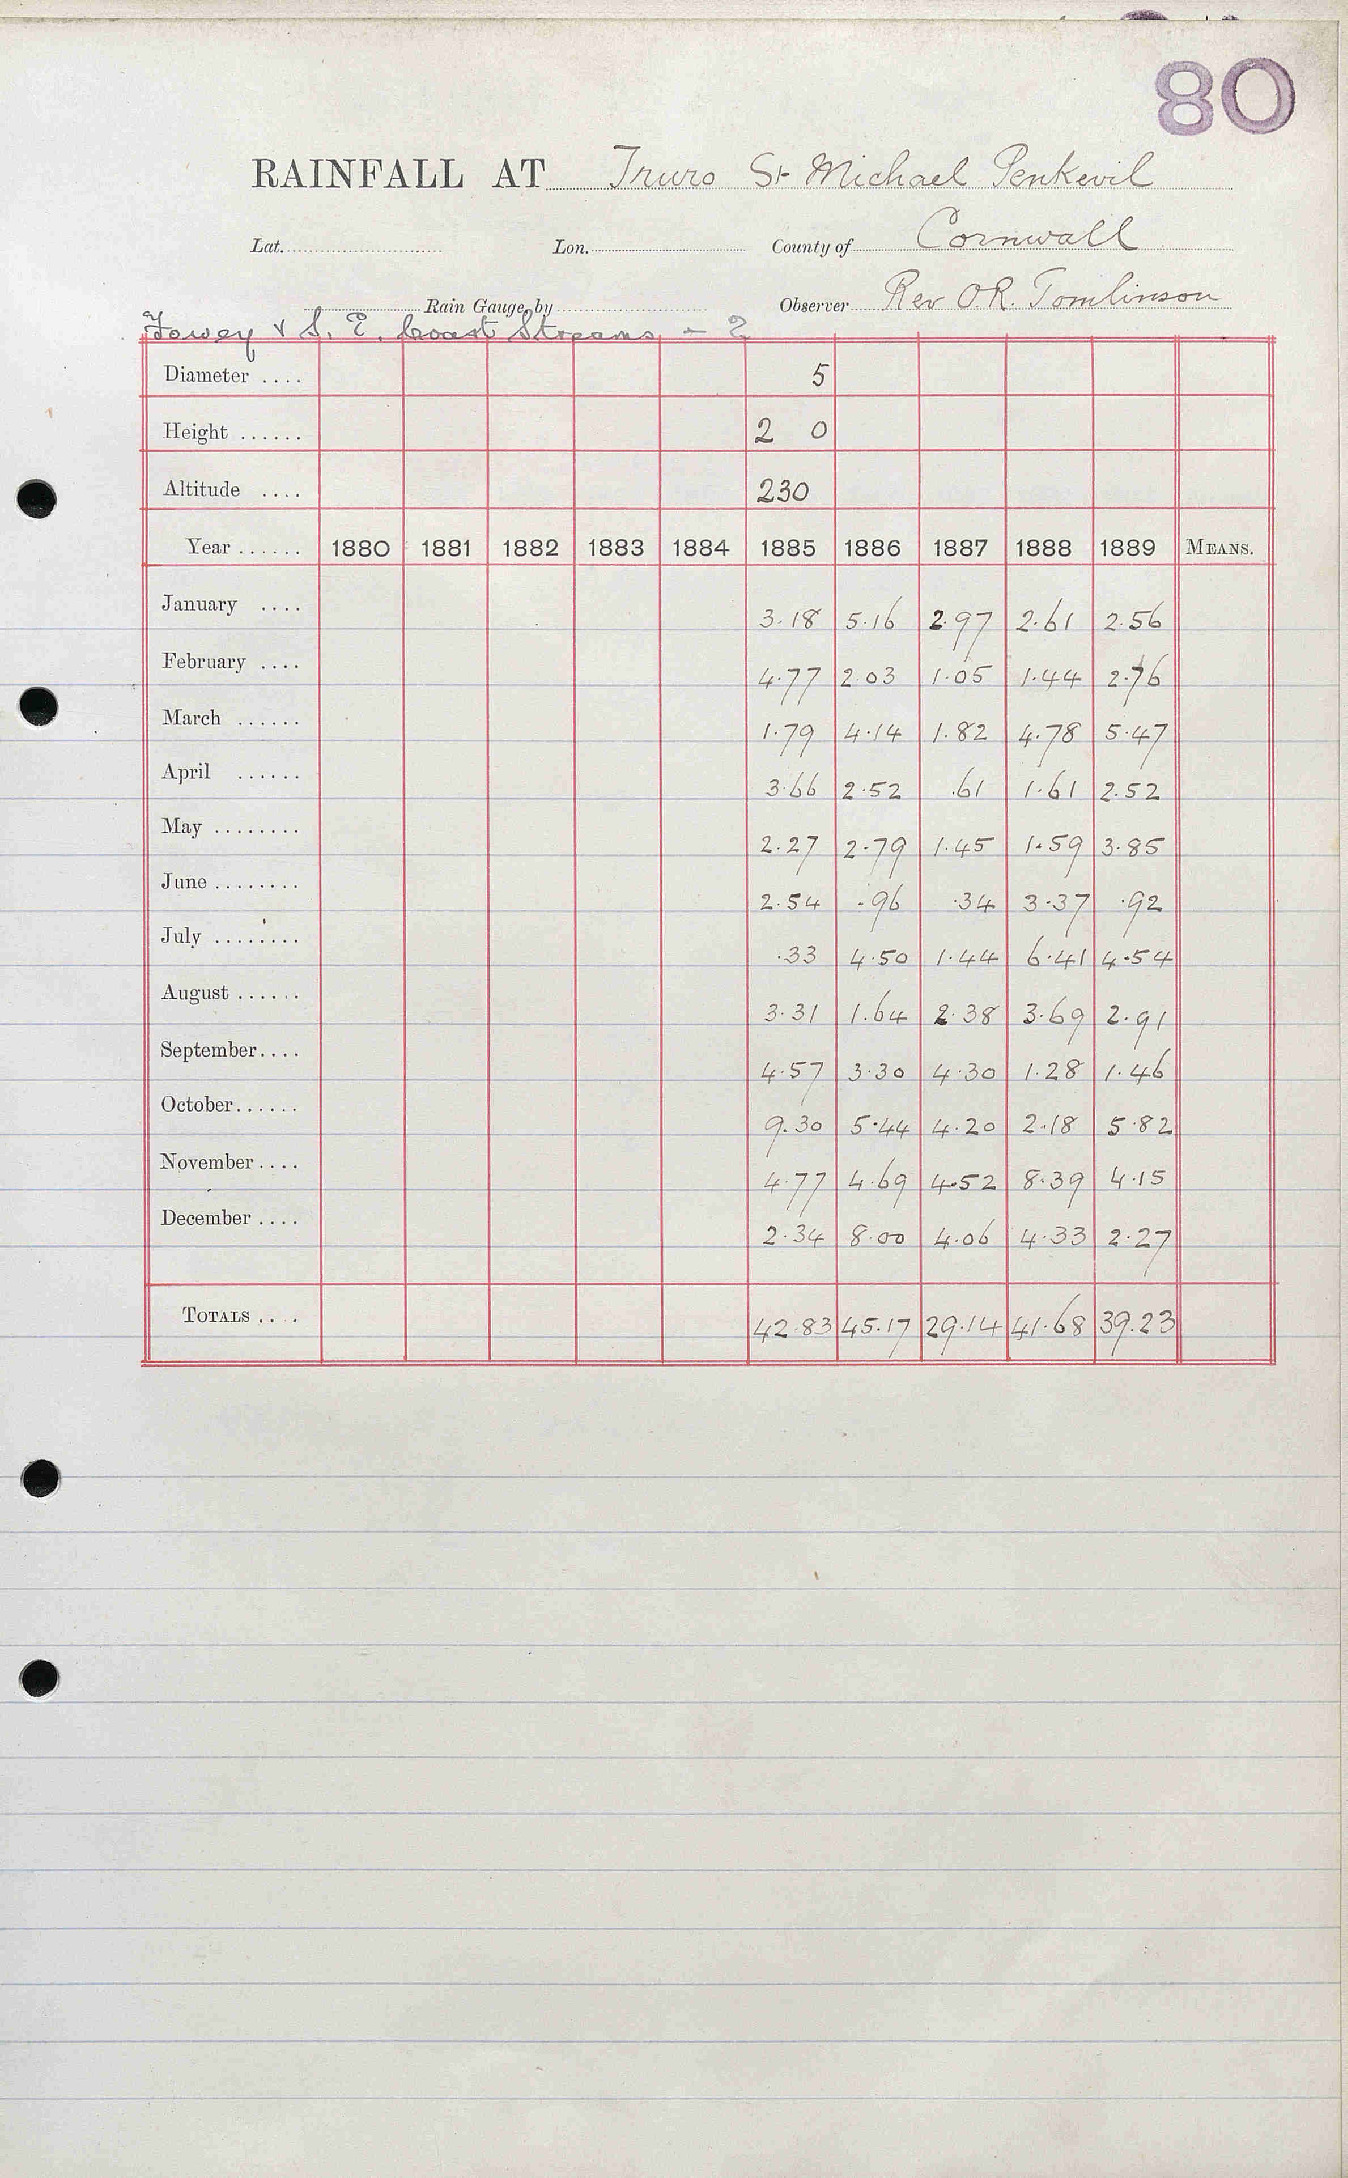 80
RAINFALL AT Truro St Michael Penkevil
Lat. Lon. County of Cornwall
Rain Gauge by Observer Rev O.R. Tomlinson
Fowey & S. E. Coast Streams - 2
Diameter .... 5
Height ...... 2 0
Altitude .... 230
Year ...... 1880 1881 1882 1883 1884 1885 1886 1887 1888 1889 MEANS.
January .... 3.18 5.16 2.97 2.61 2.56
February .... 4.77 2.03 1.05 1.44 2.76
March ...... 1.79 4.14 1.82 4.78 5.47
April ...... 3.66 2.52 .61 1.61 2.52
May ........ 2.27 2.79 1.45 1.59 3.85
June ........ 2.54 .96 .34 3.37 .92
July ........ .33 4.50 1.44 6.41 4.54
August ...... 3.31 1.64 2.38 3.69 2.91
September .... 4.57 3.30 4.30 1.28 1.46
October ...... 9.30 5.44 4.20 2.18 5.82
November .... 4.77 4.69 4.52 8.39 4.15
December .... 2.34 8.00 4.06 4.33 2.27
TOTALS .... 42.83 45.17 29.14 41.68 39.23